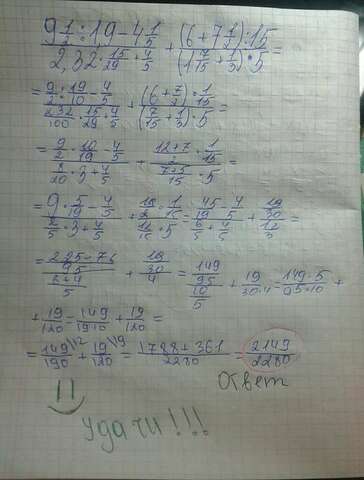 (9 1/2 : 1,9 - 4 4/5)/(2,32 · 15/29 + 4/5) + ((6 + 7 1/2) : 15)/((1 7/15 + 1/3) · 5) =
= (9/2 : 19/10 - 4/5)/(232/100 · 15/29 + 4/5) + ((6 + 7/2) · 1/15)/((7/15 + 1/3) · 5) =
= (9/2 · 10/19 - 4/5)/(2/10 · 3 + 4/5) + ((12+7)/2 · 1/15)/((7+5)/15 · 5) =
= (9 · 5/19 - 4/5)/(2/5 · 3 + 4/5) + (19/2 · 1/15)/(12/15 · 5) = (45/19 - 4/5)/(6/5 + 4/5) + (19/30)/(12/3) =
= ((225-76)/95)/((6+4)/5) + (19/30)/4 = (149/95)/(10/5) + 19/(30·4) = (149·5)/(95·10) +
+ 19/120 = 149/(19·10) + 19/120 =
= 149/190 \12 + 19/120 \19 = (1788+361)/2280 = 2149/2280
Ответ
удачи!!!